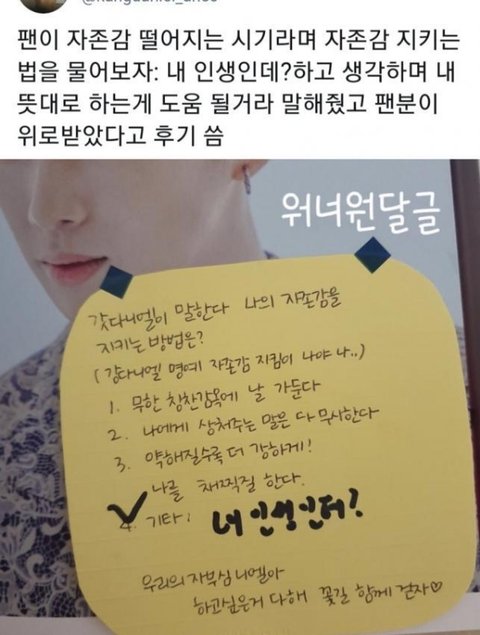 팬이 자존감 떨어지는 시기라며 자존감 지키는
법을 물어보자: 내 인생인데?하고 생각하며 내
뜻대로 하는게 도움 될거라 말해줬고 팬분이
위로받았다고 후기 씀
워너원달글
갓다니엘이 말한다 나의 자존감을
지키는 방법은?
(강다니엘 명예 자존감 지킴이 나야 나..)
1. 무한 칭찬감옥에 날 가둔다
2. 나에게 상처주는 말은 다 무시한다
3. 약해질수록 더 강하게!
나를 채찍질 한다.
4. 기타: 내 인생인데?
우리의 자부심 니엘아
하고싶은거 다해 꽃길 함께 걷자♡